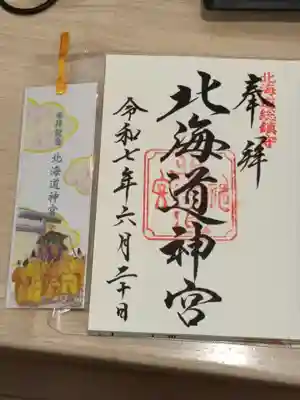 奉拝
北海道総鎮守
北海道神宮
令和七年六月二十日
参拝記念
北海道神宮